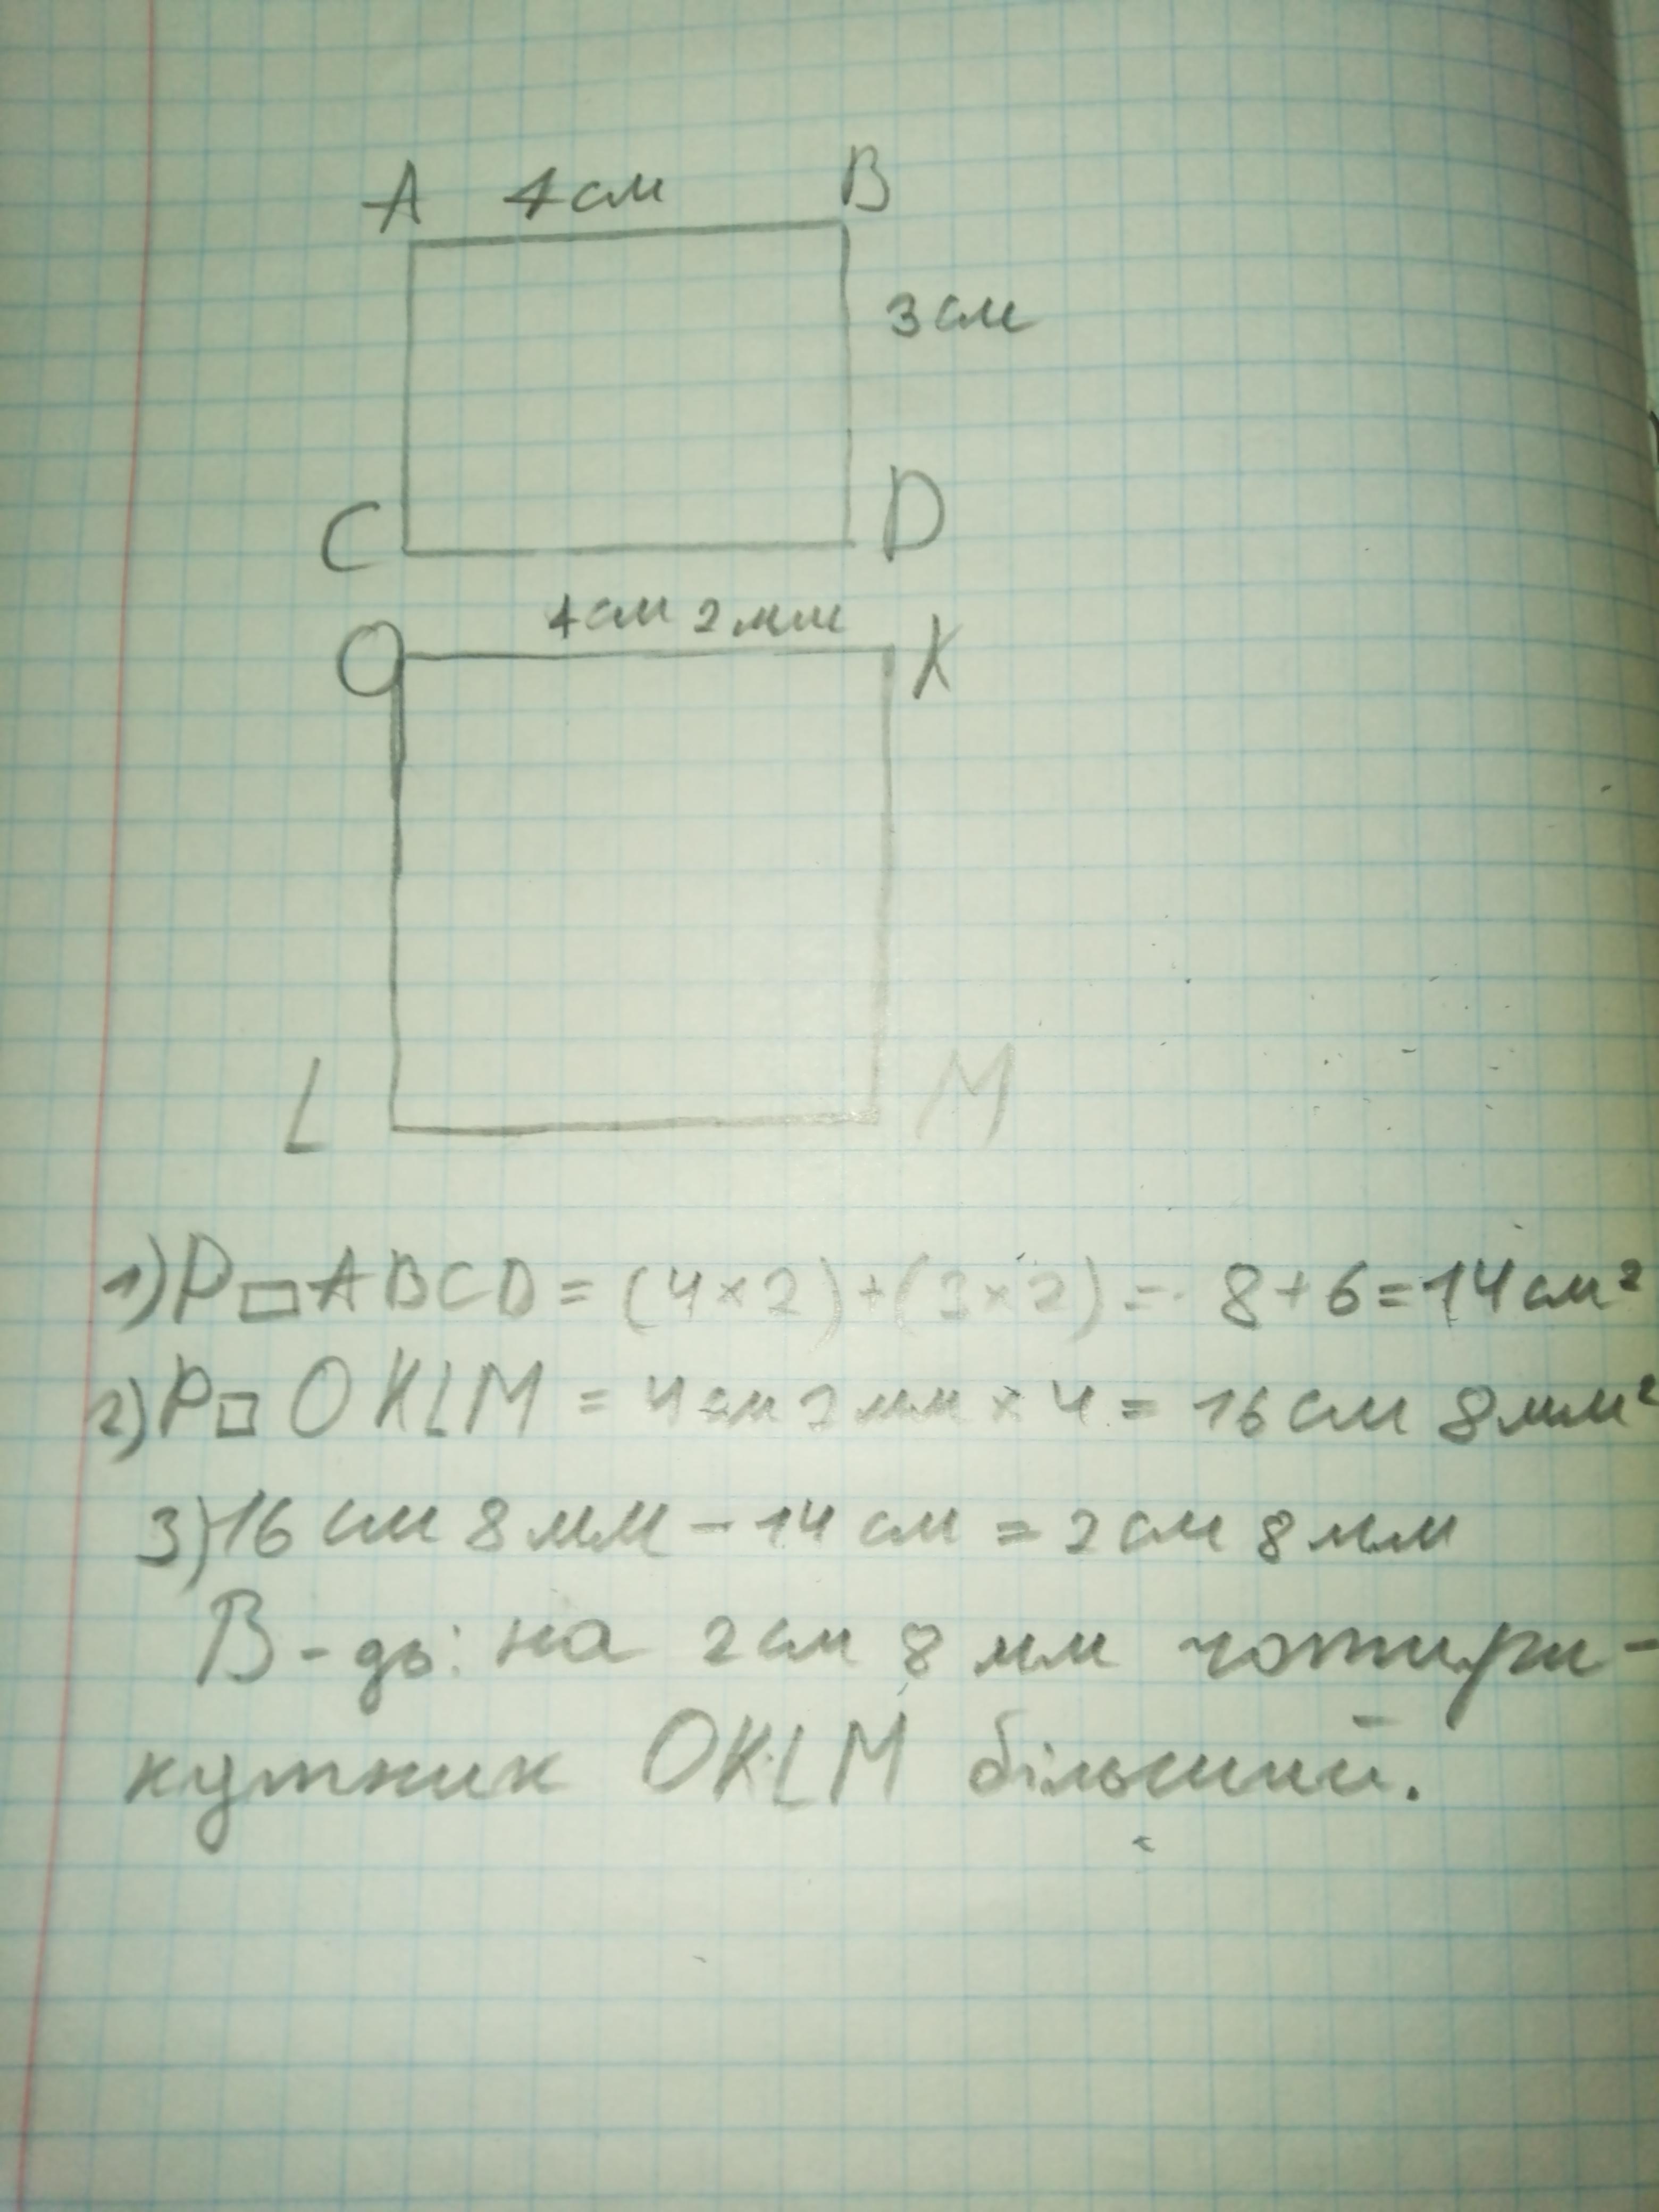 A 4см B
3см
C D
4см 2мм
O K
L M
1) P▭ABCD = (4×2)+(3×2) = 8+6=14см²
2) P□ OKLM = 4см 2мм × 4 = 16см 8мм²
3) 16 см 8 мм – 14 см = 2 см 8 мм
В-дь: на 2см 8 мм чотири-
кутник OKLM більший.